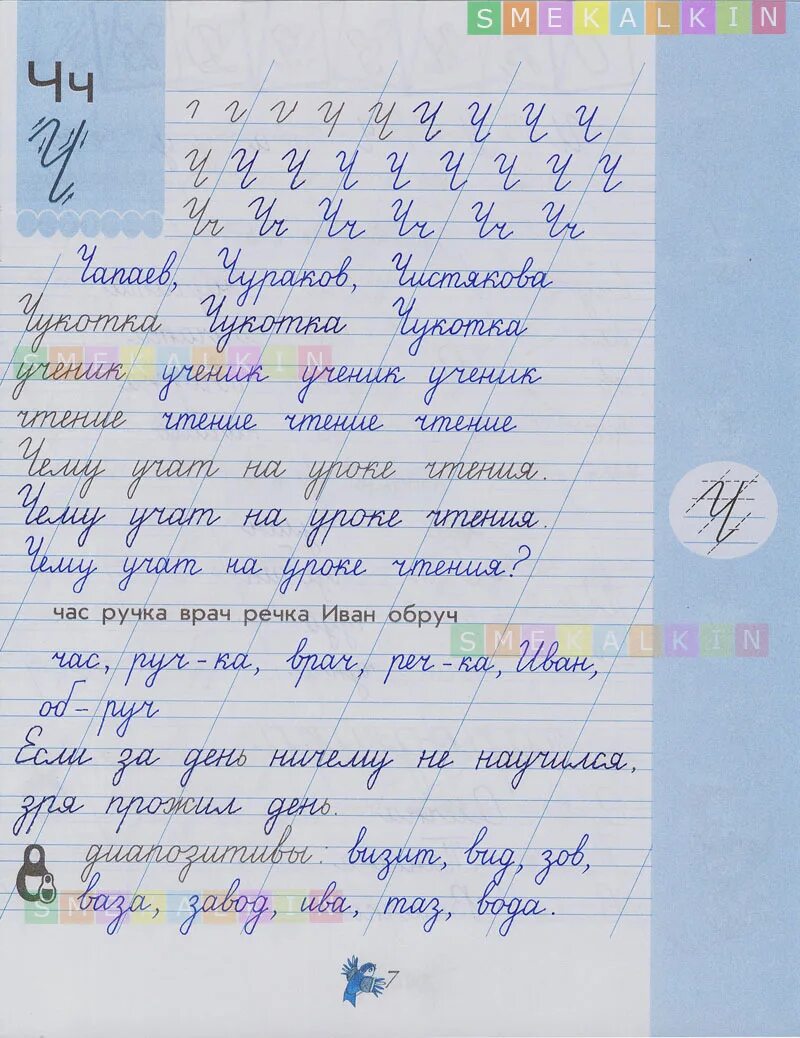 SMEKALKIN
Чч
Ч
Ч Ч Ч Ч Ч Ч
Ч Ч Ч Ч Ч Ч Ч Ч Ч
Чч Чч Чч Чч Чч Чч
Чапаев, Чураков, Чистякова
Чукотка Чукотка Чукотка
SMEKALKIN
ученик ученик ученик ученик
чтение чтение чтение чтение
Чему учат на уроке чтения.
Ч
Чему учат на уроке чтения.
Чему учат на уроке чтения?
час ручка врач речка Иван обруч
SMEKALKIN
час, руч-ка, врач, реч-ка, Иван,
об-руч
Если за день ничему не научился,
зря прожил день.
диапозитивы: визит, вид, зов,
SMEKALKIN
ваза, завод, ива, таз, вода.
7